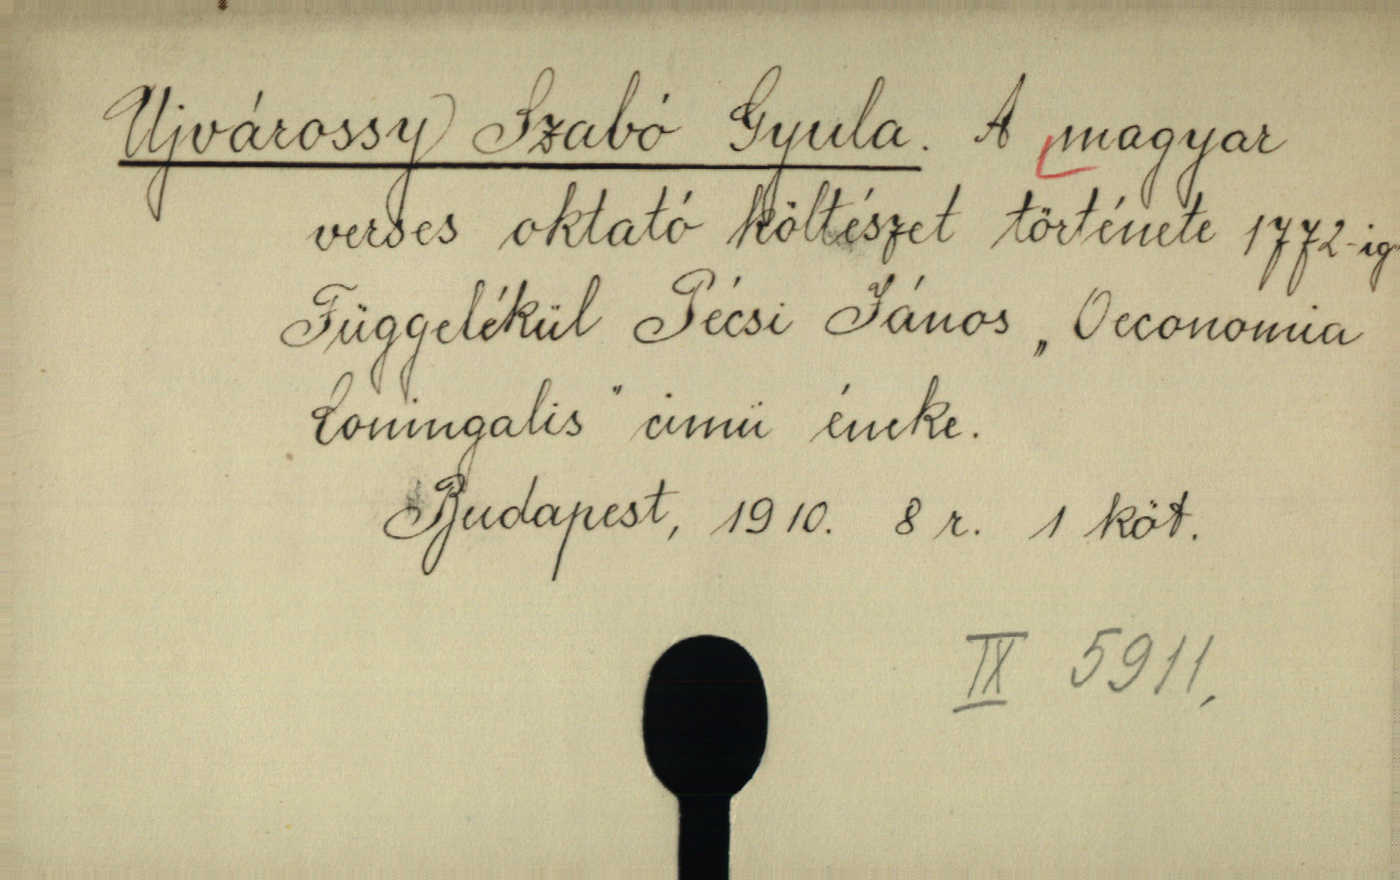 Ujvárossy Szabó Gyula. A magyar
verses oktató költészet története 1772-ig
Függelékül Pécsi János „Oeconomia
Coniugalis" cimü éneke.
Budapest, 1910. 8 r. 1 köt.
IX 5911.